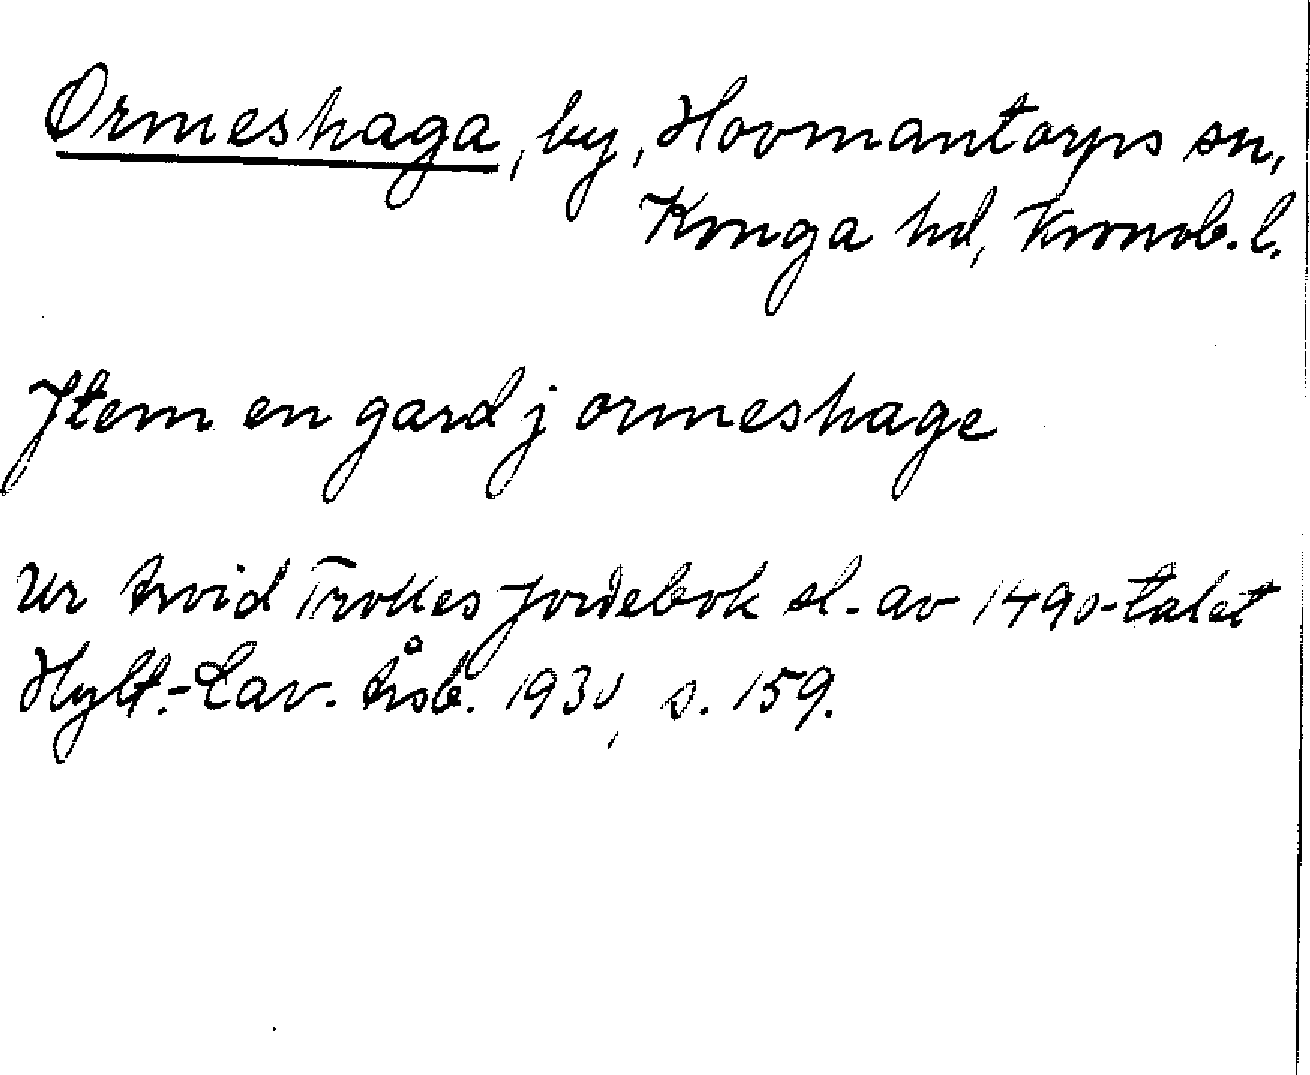 Ormeshaga, by, Hovmantorps sn,
Konga hd, Kronob. l.
Jtem en gard j ormeshage
Ur Arvid Trolles jordebok sl. av 1490-talet
Hylt.-Cav. Årsb. 1930, s. 159.